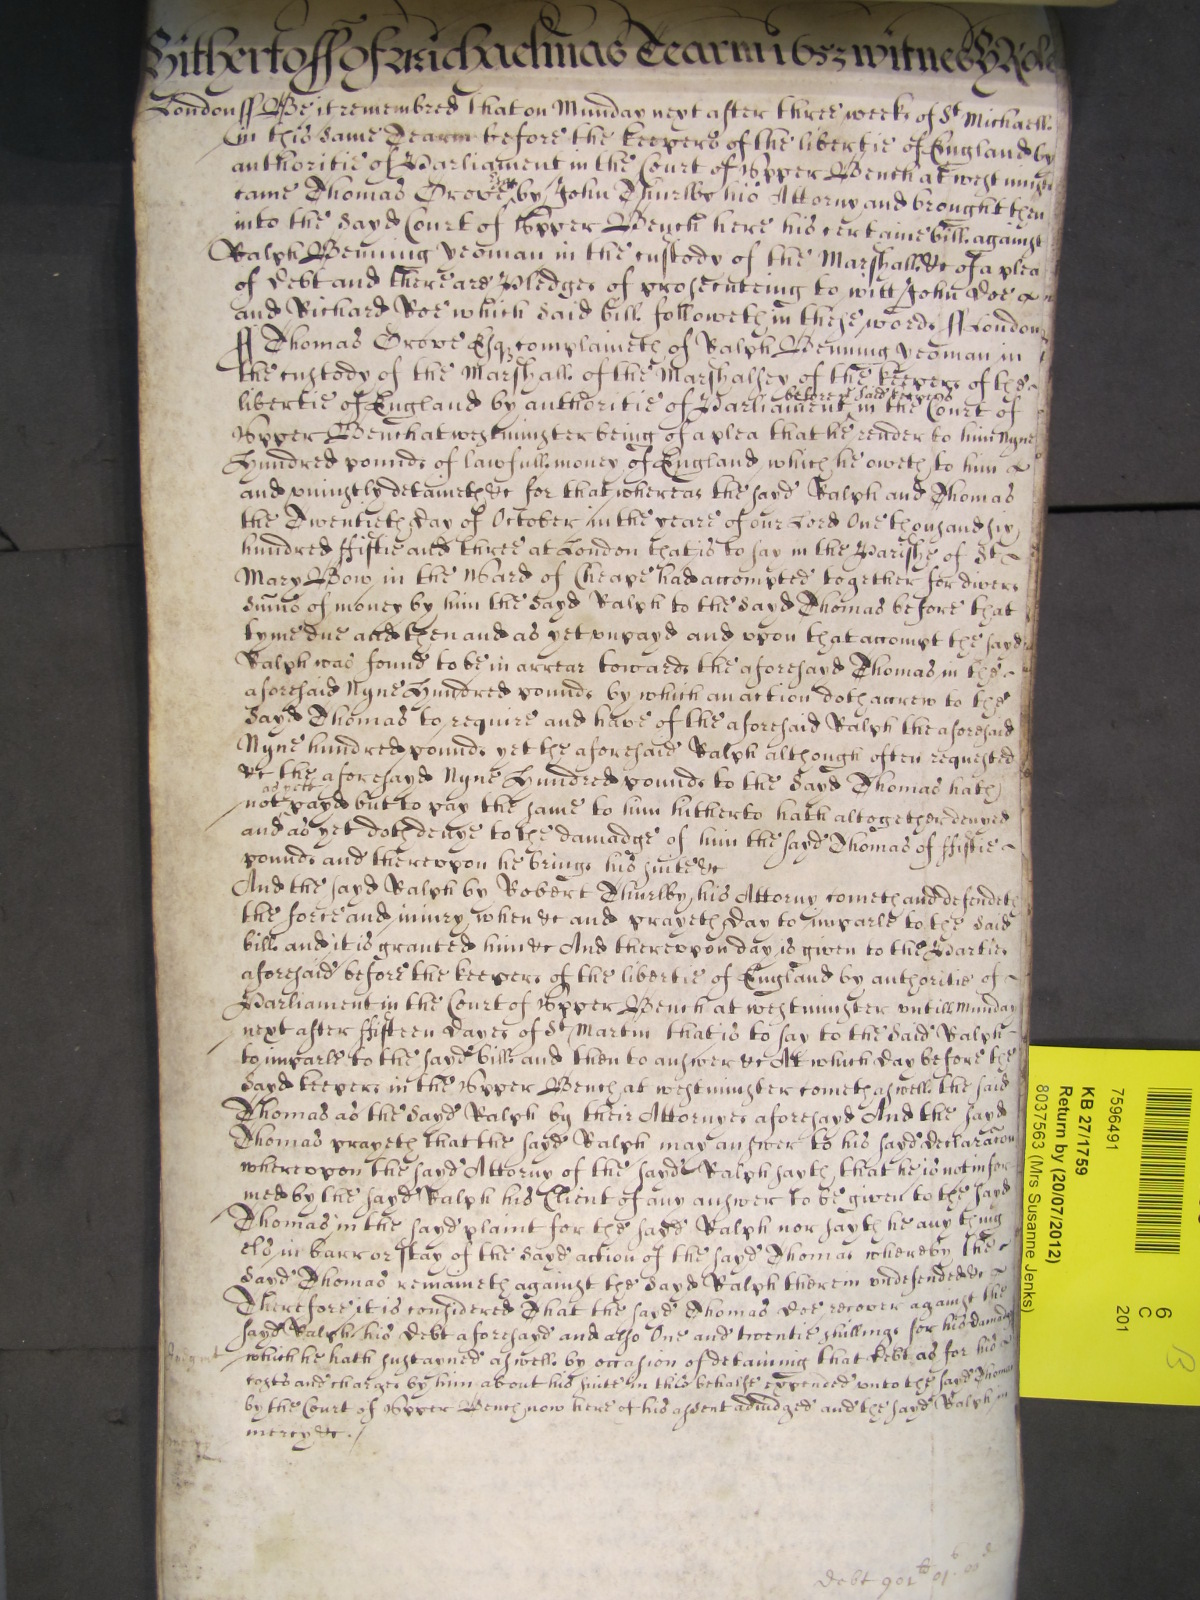 Hitherto ff Of Michaelmas Tearm 1653 witnes H Role
London ff Be it remembred that on Munday next after three weekes of St Michaell
in this same Tearm before the keepers of the libertie of England by
authoritie of Parliament in the Court of Upper Bench at westminster
came Thomas Grove Esqr by John Thurlby his Attorny and brought then
into the sayd Court of Upper Bench here his certaine bill against
Ralph Benning yeoman in the custody of the Marshall &c of a plea
of debt and there are Pledges of prosecuteing to witt John Doe
and Richard Roe which said bill followeth in these wordes ff London
ff Thomas Grove Esqr complaineth of Ralph Benning yeoman in
the custody of the Marshall of the Marshalsey of the keepers of the
before ye said keepers
libertie of England by authoritie of Parliament in the Court of
Upper Bench at westminster being of a plea that he render to him Nyne
Hundred poundes of lawfull money of England which he oweth to him
and uniustly detaineth &c for that whereas the sayd Ralph and Thomas
the Twentieth day of October in the yeare of our Lord One thousand six
hundred fiftie and three at London that is to say in the Parishe of St
Mary Bow in the Ward of Cheape had accompted together for divers
summs of money by him the sayd Ralph to the sayd Thomas before that
tyme due and then and as yet unpayd and upon that accompt the sayd
Ralph was found to be in arrear towardes the aforesayd Thomas in the
aforesaid Nyne Hundred poundes by which an action doth accrew to the
sayd Thomas to require and have of the aforesaid Ralph the aforesaid
Nyne hundred poundes yet the aforesaid Ralph although often requested
&c the aforesayd Nyne Hundred poundes to the sayd Thomas hath
as yett
not payd but to pay the same to him hitherto hath altogether denyed
and as yet doth denye to the damadge of him the sayd Thomas of ffiftie
poundes and thereupon he bringes his suite &c
And the sayd Ralph by Robert Thurlby his Attorny cometh and defendeth
the force and iniury when &c and prayeth day to imparle to the said
bill and it is granted him &c And thereupon day is given to the Parties
aforesaid before the keepers of the libertie of England by authoritie of
Parliament in the Court of Upper Bench at westminster untill Munday
next after ffifteen dayes of St Martin that is to say to the said Ralph
to imparle to the sayd bill and then to answer &c At which day before the
sayd keepers in the Upper Bench at westminster cometh aswell the said
Thomas as the sayd Ralph by their Attornyes aforesayd And the sayd
Thomas prayeth that the sayd Ralph may answer to his sayd declaracion
whereupon the sayd Attorny of the sayd Ralph sayth that he is not infor
med by the sayd Ralph his Client of any answer to be given to the sayd
Thomas in the sayd plaint for the sayd Ralph nor sayth he any thing
els in barr or stay of the sayd action of the sayd Thomas whereby the
sayd Thomas remaineth against the sayd Ralph therein undefended &c
Therefore it is considered That the sayd Thomas doe recover against the
sayd Ralph his debt aforesayd and also One and twentie shillings for his damages
which he hath sustayned aswell by occasion of detaining that debt as for his
costs and charges by him about his suite in this behalfe expended unto the sayd Thomas
by the Court of Upper Bench now here of his assent adiudged and the sayd Ralph in
mercy &c.
Debt 901 li 01 s 00 d
7596491
KB 27/1759
Return by (20/07/2012)
8037563 (Mrs Susanne Jenks)
6
C
201